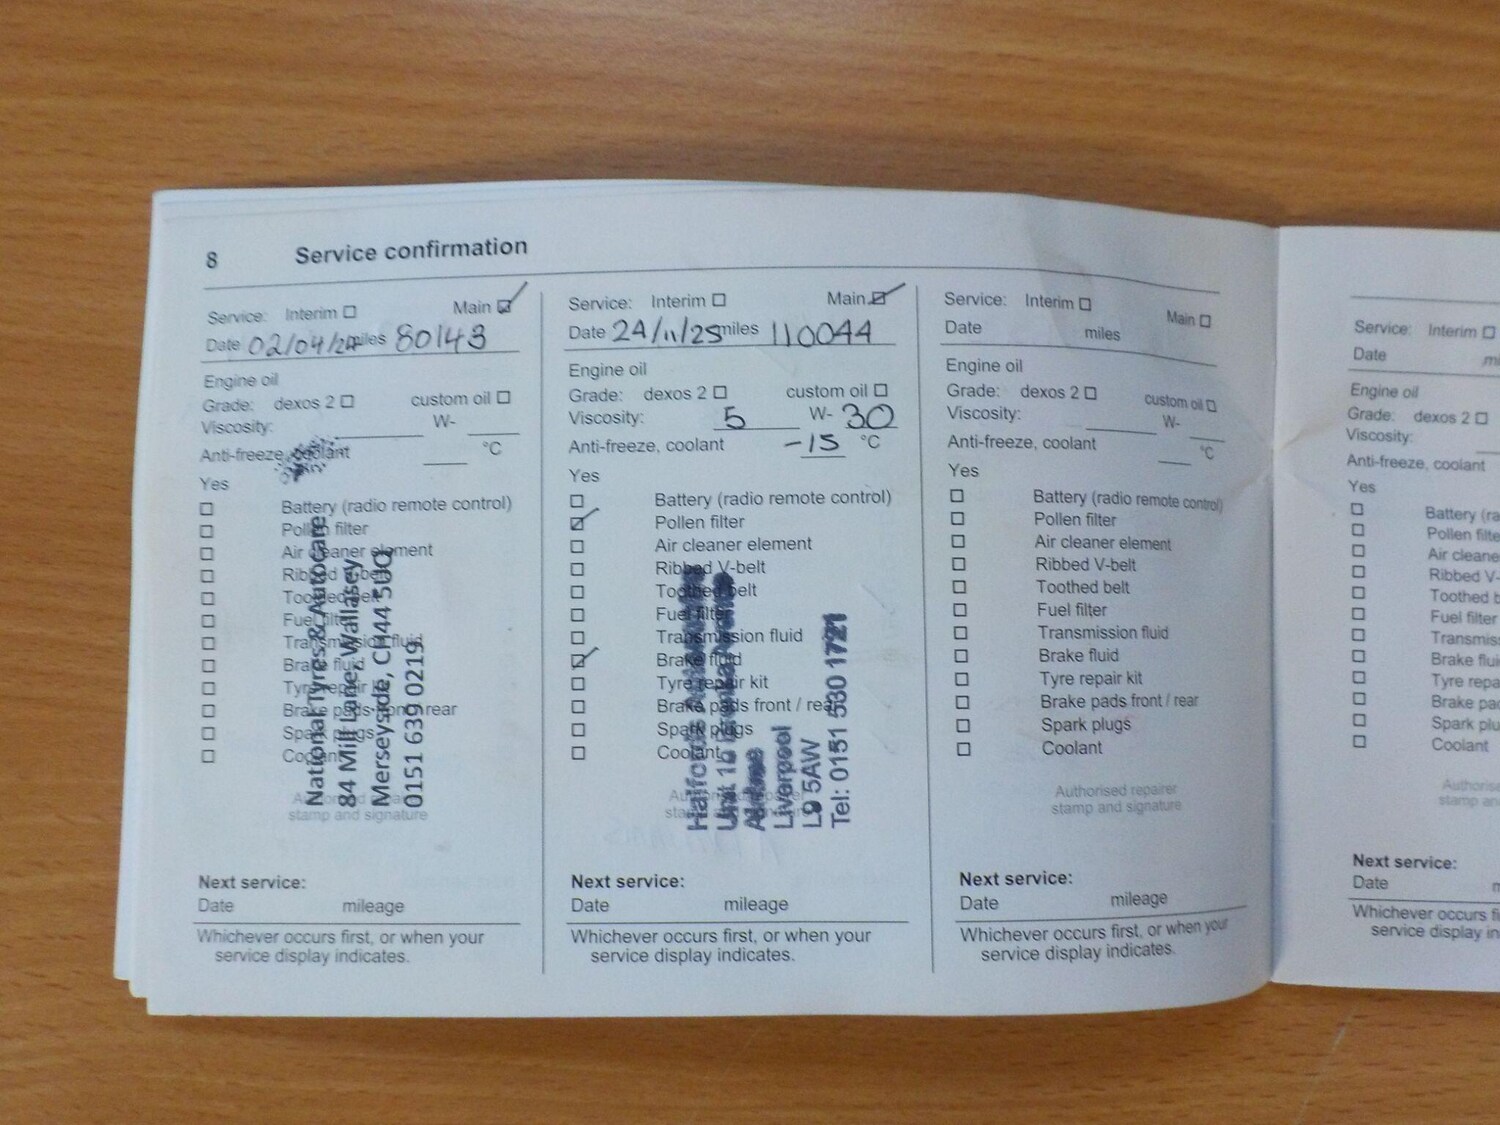 8 Service confirmation
Service: Interim Main
Date 02/04/24 miles 80143
Engine oil
Grade: dexos 2 custom oil
Viscosity: W-
Anti-freeze, coolant °C
Yes
Battery (radio remote control)
Pollen filter
Air cleaner element
Ribbed V-belt
Toothed belt
Fuel filter
Transmission fluid
Brake fluid
Tyre repair kit
Brake pads front / rear
Spark plugs
Coolant
Authorised repairer
stamp and signature
National Tyres & Autocare
84 Mill Lane, Wallasey
Merseyside, CH44 5UG
0151 639 0219
Next service:
Date mileage
Whichever occurs first, or when your
service display indicates.
Service: Interim Main
Date 24/11/25 miles 110044
Engine oil
Grade: dexos 2 custom oil
Viscosity: 5 W- 30
Anti-freeze, coolant -15 °C
Yes
Battery (radio remote control)
Pollen filter
Air cleaner element
Ribbed V-belt
Toothed belt
Fuel filter
Transmission fluid
Brake fluid
Tyre repair kit
Brake pads front / rear
Spark plugs
Coolant
stamp and signature
Halfords
Unit
Aintree
Liverpool
L9 5AW
Tel: 0151 530 1721
Next service:
Date mileage
Whichever occurs first, or when your
service display indicates.
Service: Interim Main
Date miles
Engine oil
Grade: dexos 2 custom oil
Viscosity: W-
Anti-freeze, coolant °C
Yes
Battery (radio remote control)
Pollen filter
Air cleaner element
Ribbed V-belt
Toothed belt
Fuel filter
Transmission fluid
Brake fluid
Tyre repair kit
Brake pads front / rear
Spark plugs
Coolant
Authorised repairer
stamp and signature
Next service:
Date mileage
Whichever occurs first, or when your
service display indicates.
Service: Interim
Date mi
Engine oil
Grade: dexos 2
Viscosity:
Anti-freeze, coolant
Yes
Battery (ra
Pollen filte
Air cleane
Ribbed V-
Toothed b
Fuel filter
Transmiss
Brake flui
Tyre repa
Brake pa
Spark plu
Coolant
Authorise
stamp an
Next service:
Date m
Whichever occurs fi
service display in